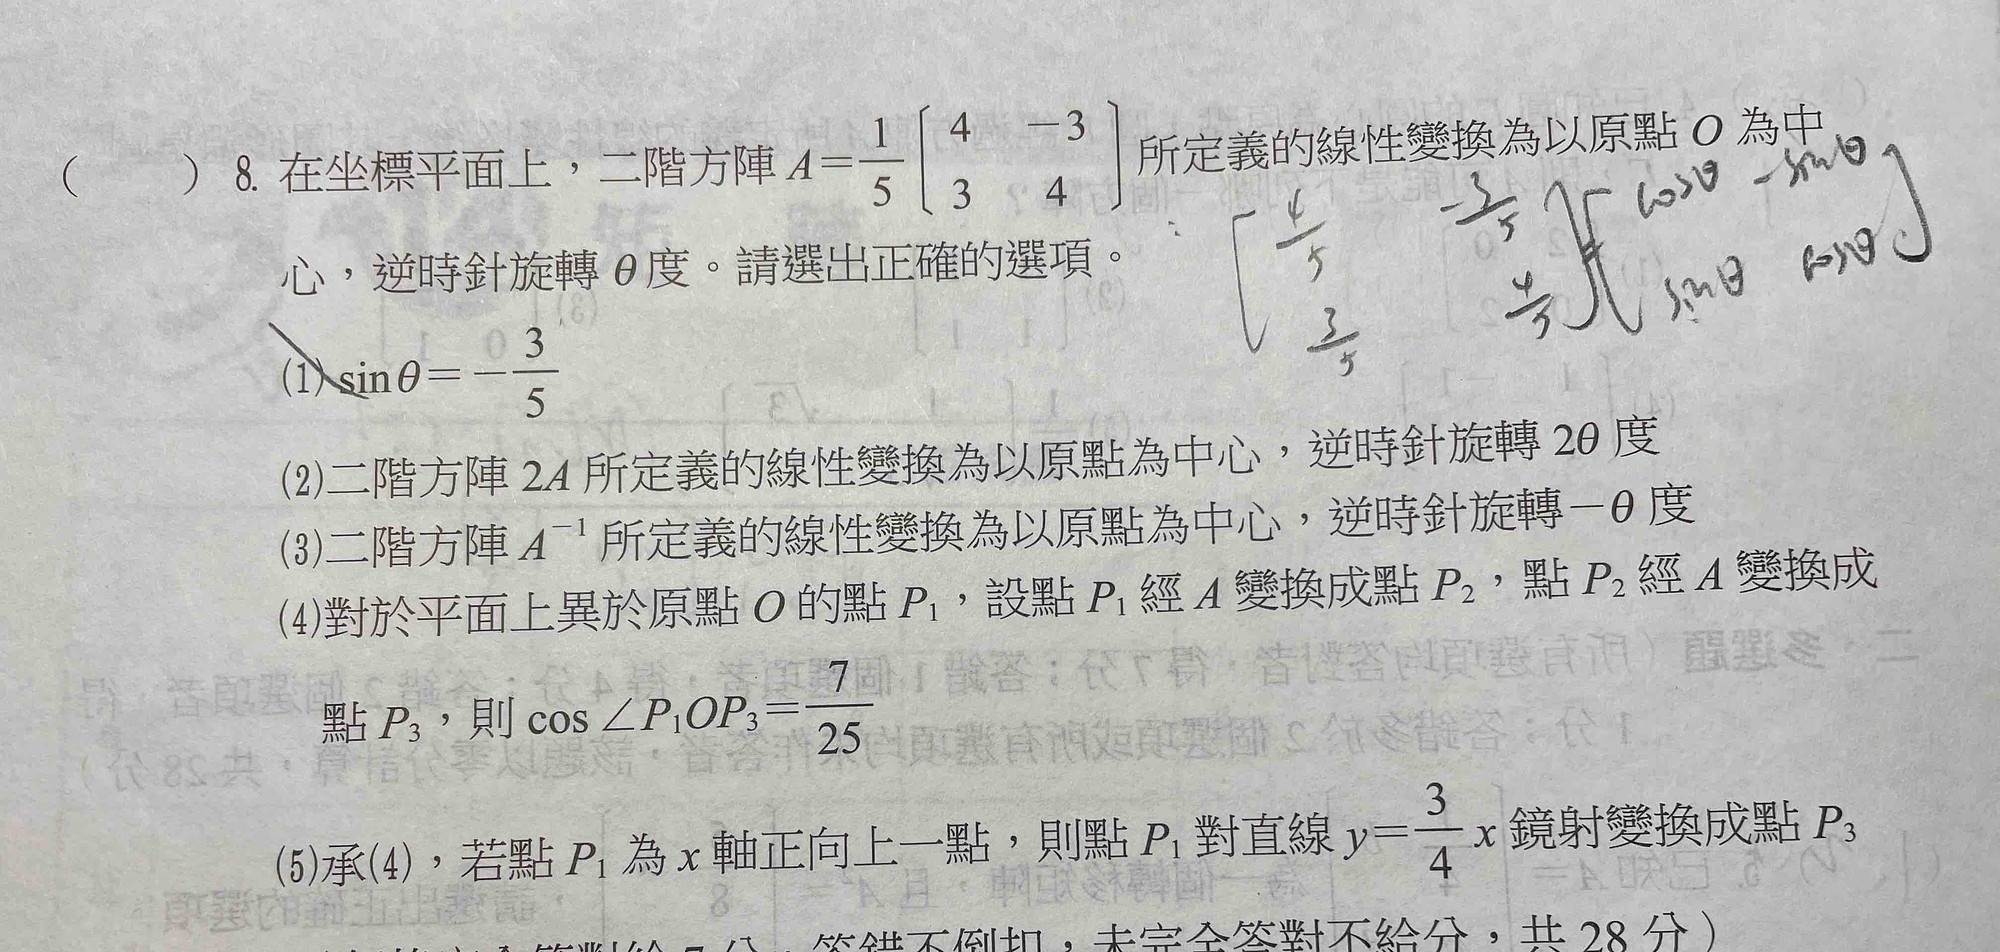 (　　) 8. 在坐標平面上，二階方陣 A=1/5[4 −3 3 4] 所定義的線性變換為以原點 O 為中
心，逆時針旋轉 θ 度。請選出正確的選項。
[4/5 −3/5 3/5 4/5] [cosθ −sinθ sinθ cosθ]
(1) sinθ=−3/5
(2)二階方陣 2A 所定義的線性變換為以原點為中心，逆時針旋轉 2θ 度
(3)二階方陣 A⁻¹ 所定義的線性變換為以原點為中心，逆時針旋轉−θ 度
(4)對於平面上異於原點 O 的點 P₁，設點 P₁ 經 A 變換成點 P₂，點 P₂ 經 A 變換成
點 P₃，則 cos ∠P₁OP₃=7/25
(5)承(4)，若點 P₁ 為 x 軸正向上一點，則點 P₁ 對直線 y=3/4 x 鏡射變換成點 P₃
答錯不倒扣，未完全答對不給分，共 28 分）